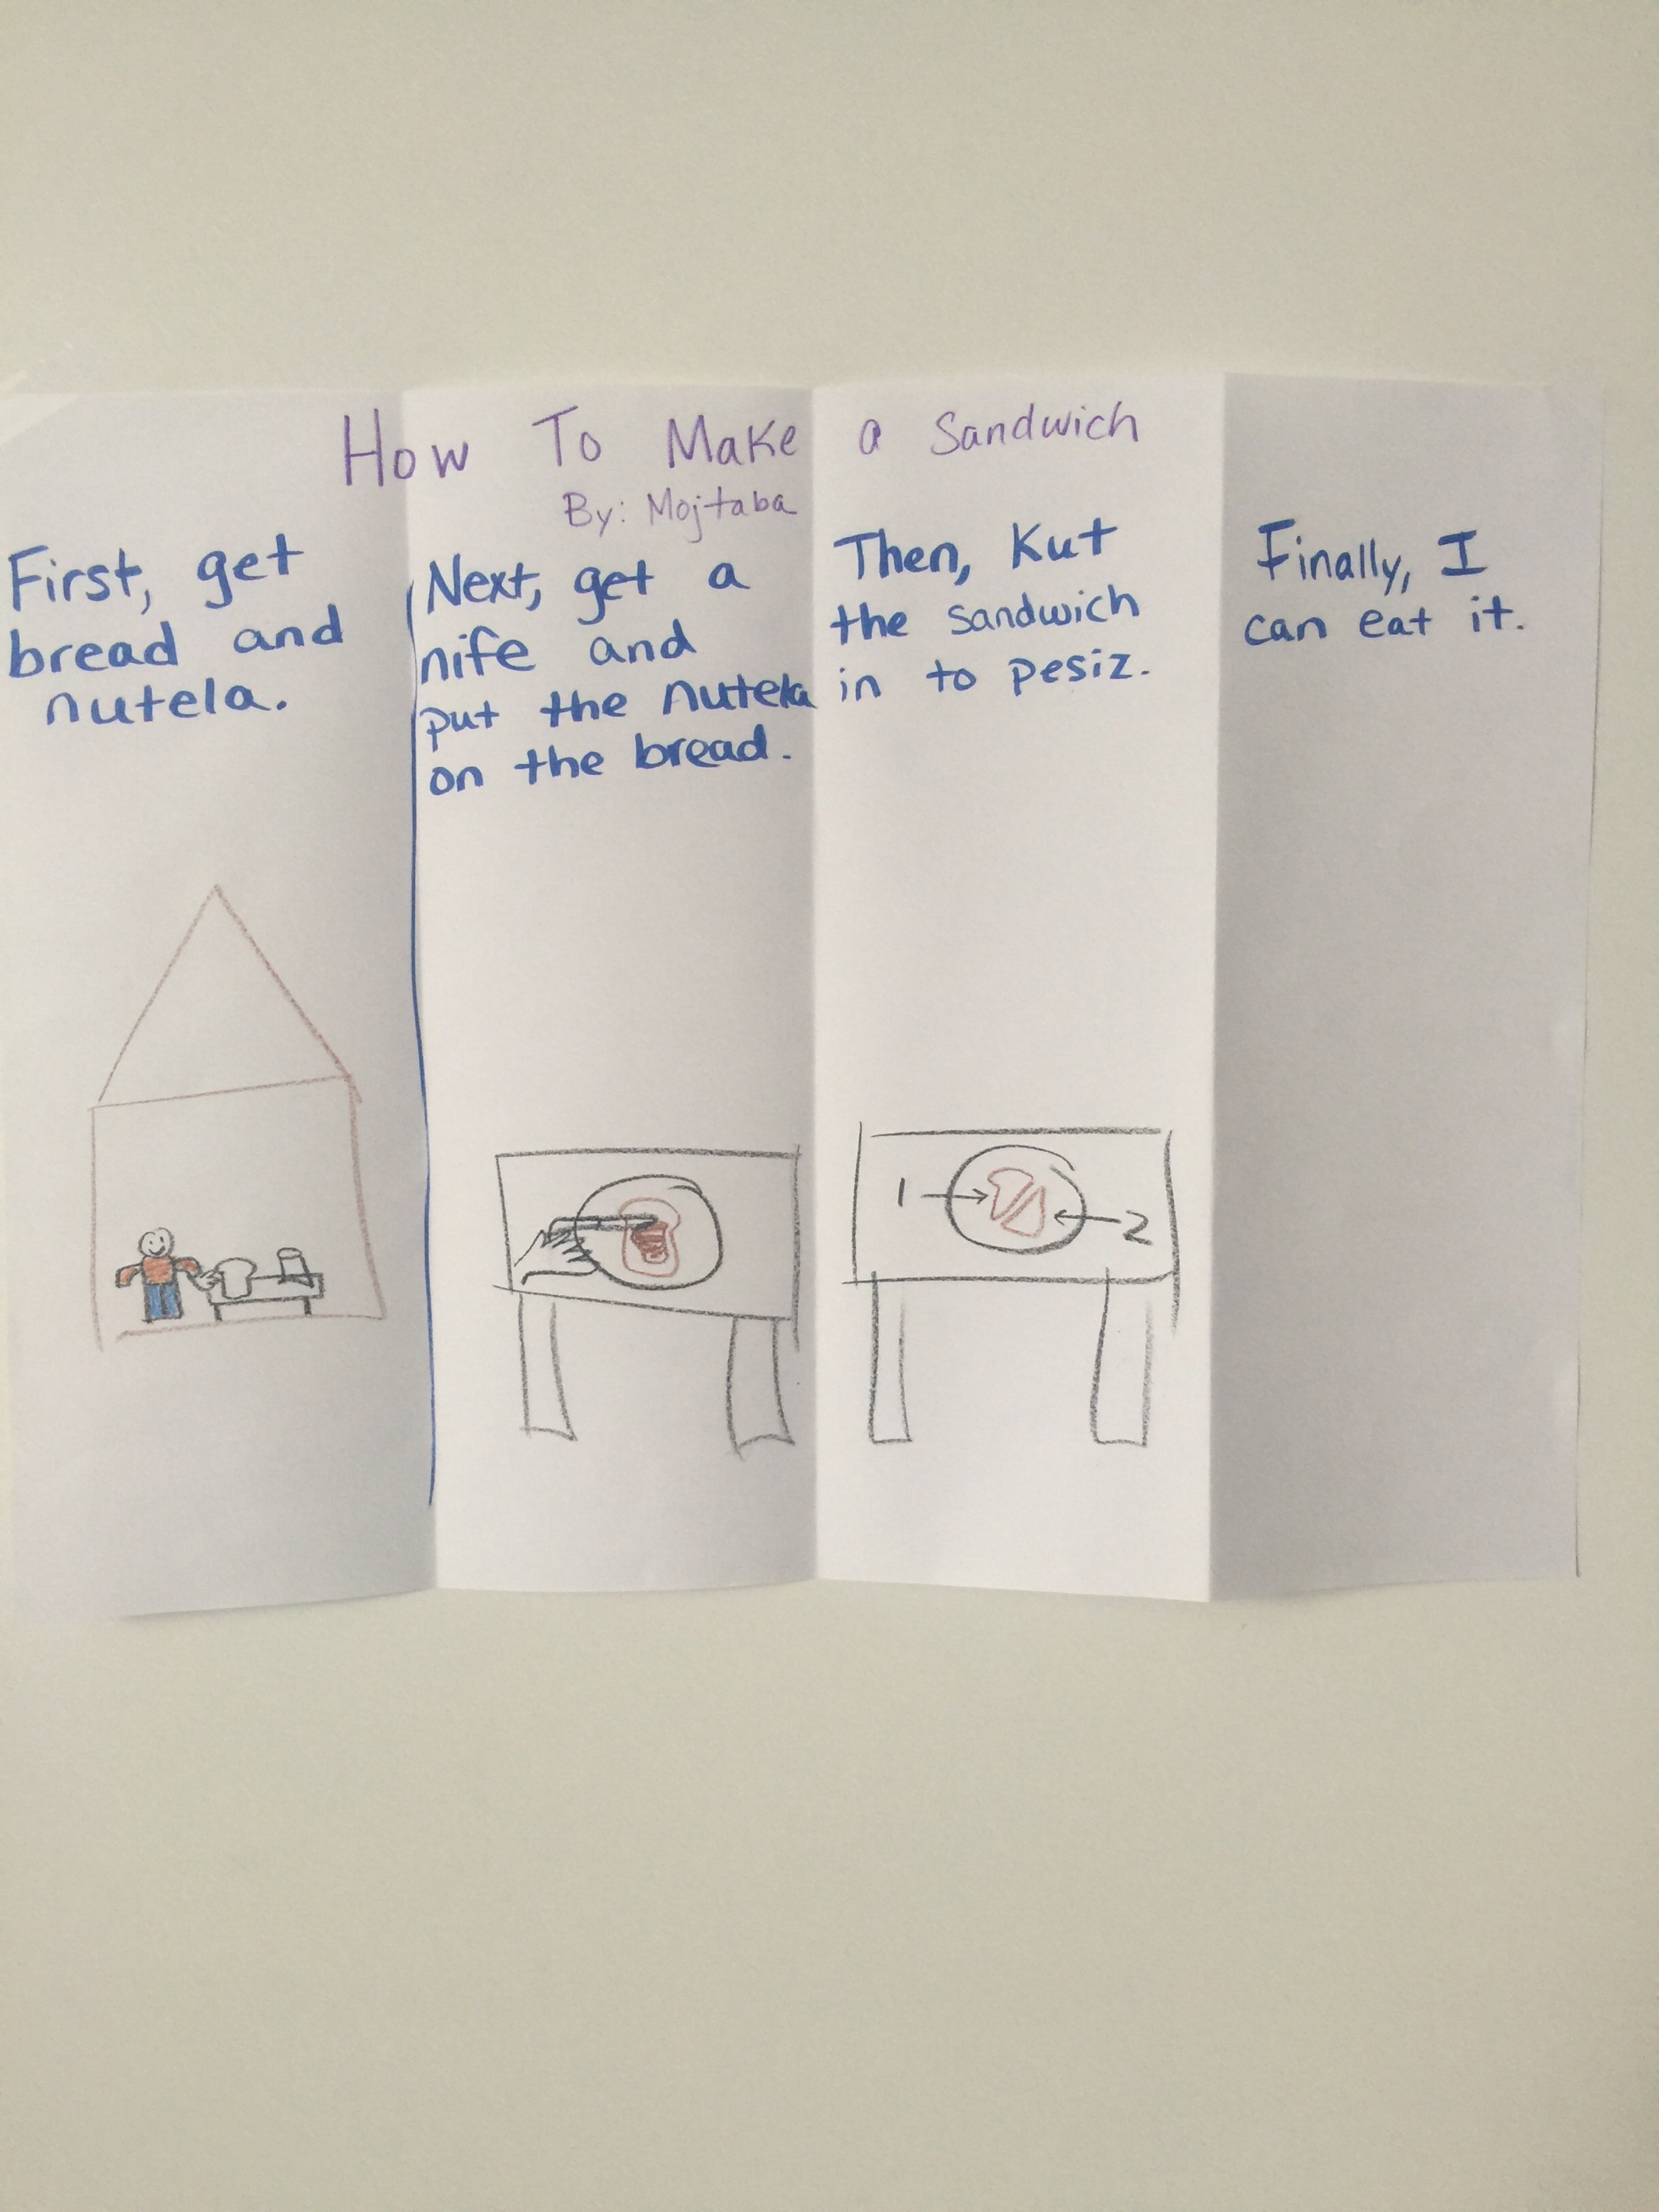 How To Make a Sandwich
By: Mojtaba
First, get
bread and
nutela.
Next, get a
nife and
put the nutela
on the bread.
Then, Kut
the sandwich
in to pesiz.
1
2
Finally, I
can eat it.